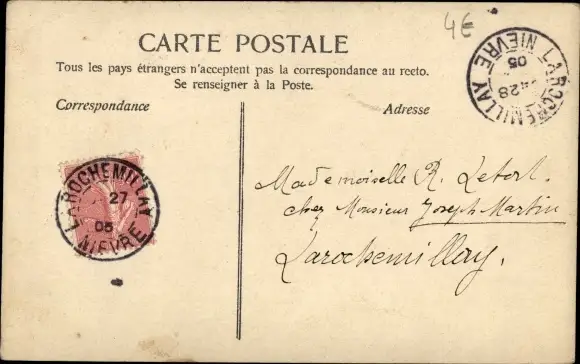 4€
CARTE POSTALE
Tous les pays étrangers n'acceptent pas la correspondance au recto.
Se renseigner à la Poste.
Correspondance
Adresse
LAROCHEMILLAY
28
05
NIEVRE
LAROCHEMILLAY
27
05
NIEVRE
Mademoiselle R. Letort.
chez Monsieur Joseph Martin
Larochemillay.